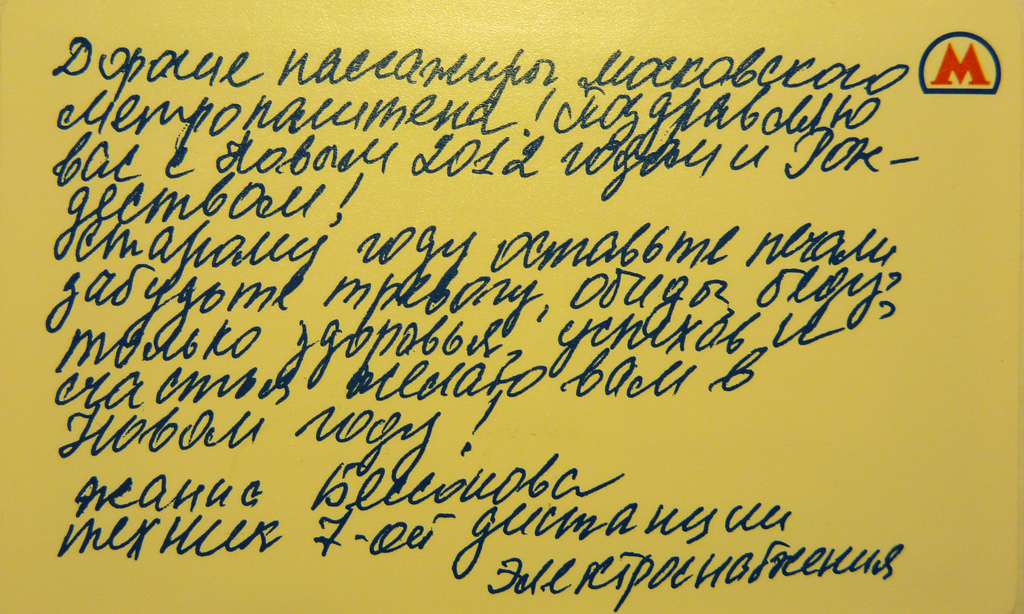 Дорогие пассажиры московского
метрополитена! Поздравляю
вас с Новым 2012 годом и Рож-
деством!
Старому году оставьте печали
забудьте тревогу, обиды, беду,
только здоровья, успехов и
счастья желаю вам в
Новом году!
Жанна Бессонова
техник 7-ой дистанции
электроснабжения
М